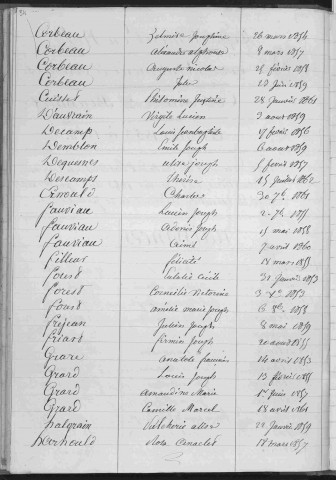 Corbeau Zelmire Joséphine 26 mars 1854
Corbeau alexandre alphonse 8 mars 1857
Corbeau auguste nicolas 28 février 1858
Corbeau Jules 12 Juin 1859
Cuisset Philomène Justine 28 Janvier 1861
Dautrain Virgile Lucien 3 aout 1859
Decamps Louis 17 février 1856
Demblon Emile Joseph 6 aout 1859
Dequesnes Joseph 5 février 1857
Descamps 15 Juillet 1862
Charles 30 7bre 1861
fauviau Lucien Joseph 2 7bre 1855
fauviau Joseph 15 mai 1858
fauviau aimé 7 avril 1860
filleur félicité 18 mars 1855
forest 31 Janvier 1853
forest Cornélie Victorine 3 1853
forest amélie marie Joseph 6 1858
fréjean Julien Joseph 8 mai 1859
friart firmin Joseph 20 aout 1855
Grare Anatole françois 14 avril 1853
Grard Louis Joseph 13 février 1855
Grard amandine Marie 1er Juin 1857
Grard Camille Marcel 18 avril 1861
29 Janvier 1859
hernould Rosa 18 mars 1857